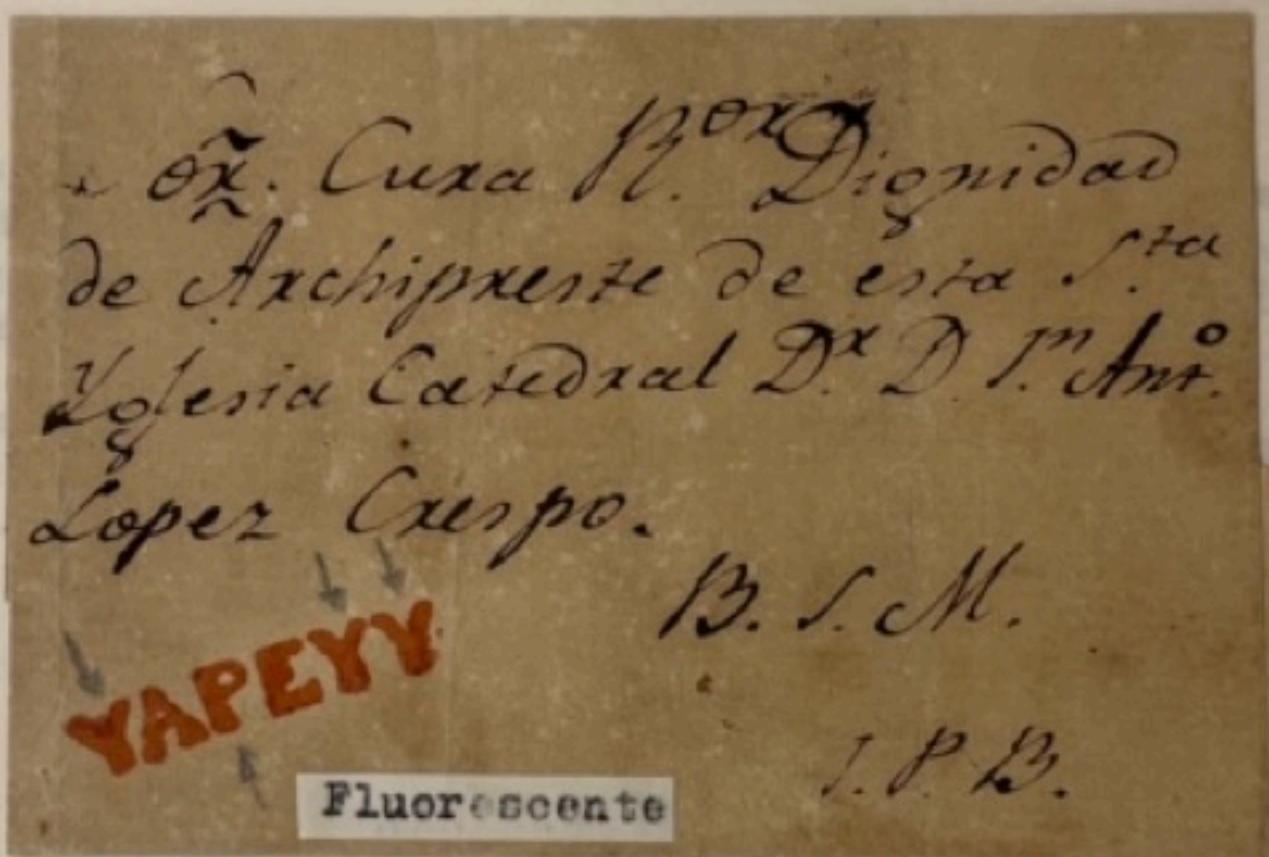 or. Cura R.or Dignidad
de Archipreste de esta S.ta
Yglesia Catedral D.r D. J.n Ant.o
Lopez Crespo.
B. S. M.
YAPEYY
J. P. B.
Fluorescente